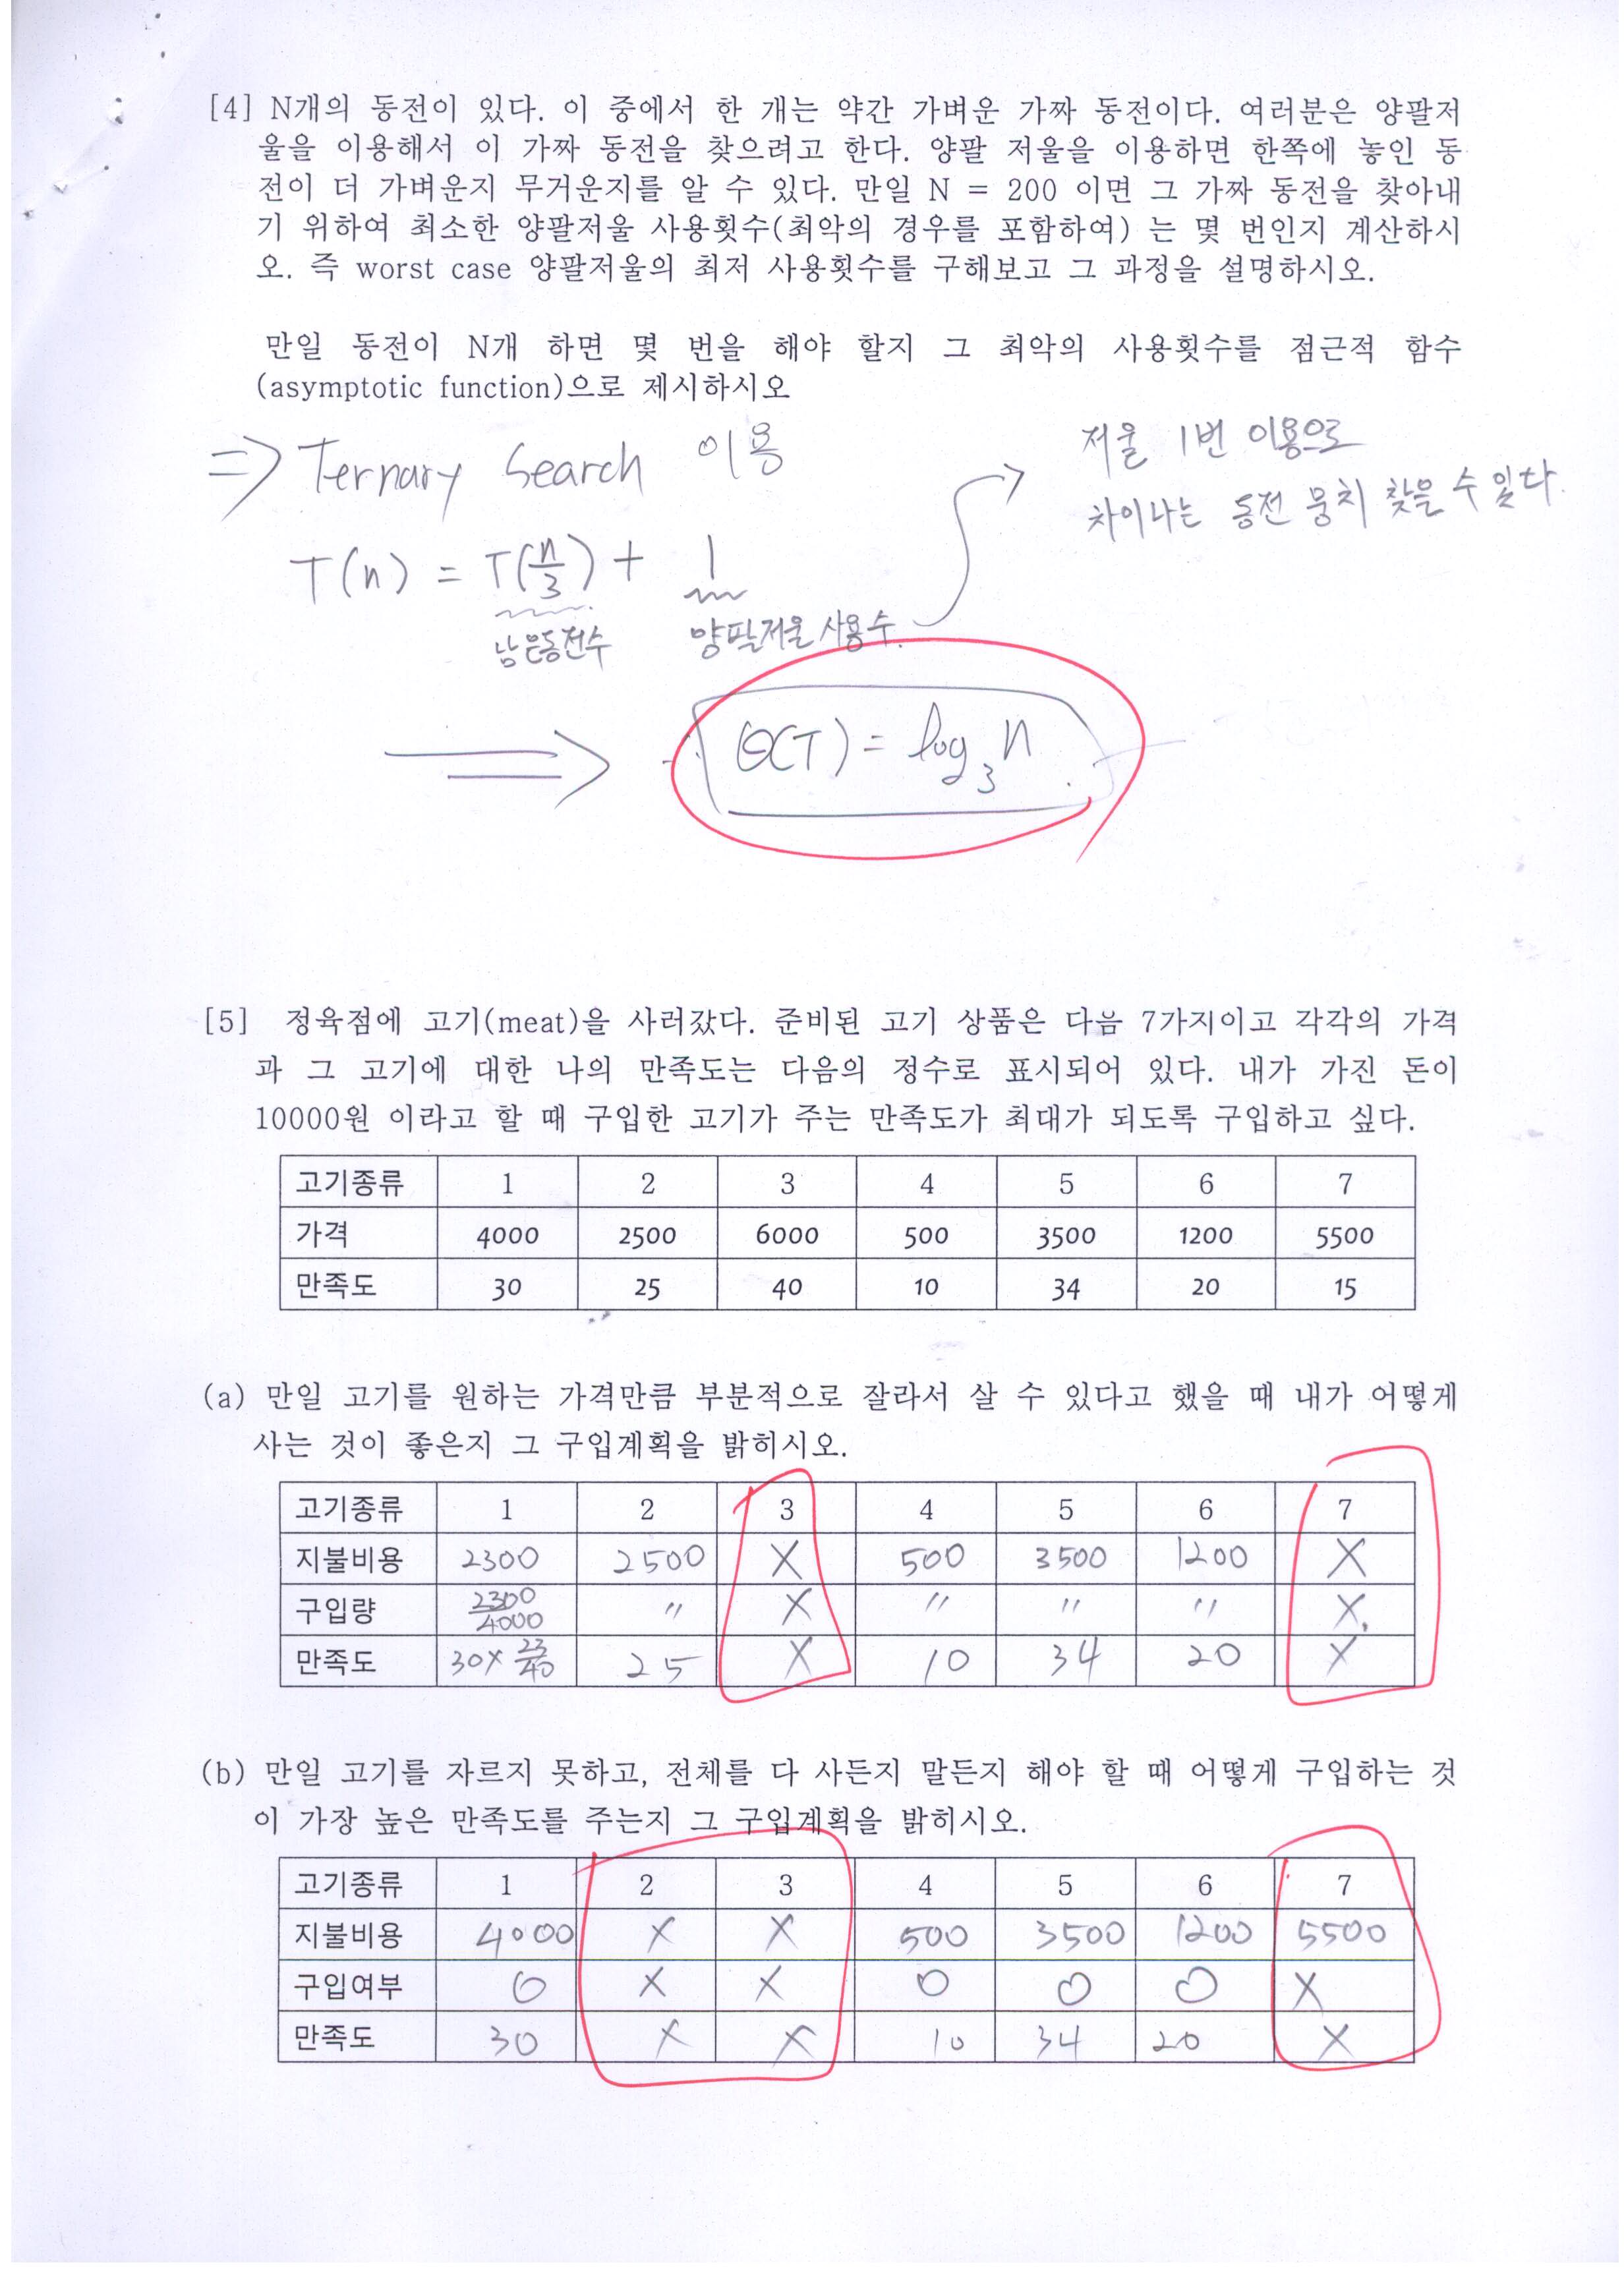 [4] N개의 동전이 있다. 이 중에서 한 개는 약간 가벼운 가짜 동전이다. 여러분은 양팔저
울을 이용해서 이 가짜 동전을 찾으려고 한다. 양팔 저울을 이용하면 한쪽에 놓인 동
전이 더 가벼운지 무거운지를 알 수 있다. 만일 N = 200 이면 그 가짜 동전을 찾아내
기 위하여 최소한 양팔저울 사용횟수(최악의 경우를 포함하여) 는 몇 번인지 계산하시
오. 즉 worst case 양팔저울의 최저 사용횟수를 구해보고 그 과정을 설명하시오.
만일 동전이 N개 하면 몇 번을 해야 할지 그 최악의 사용횟수를 점근적 함수
(asymptotic function)으로 제시하시오
⇒ Ternary Search 이용
저울 1번 이용으로
차이나는 동전 뭉치 찾을 수 있다.
T(n) = T(n/3) + 1
남은동전수 양팔저울 사용수.
⇒ Θ(T) = log₃n.
[5] 정육점에 고기(meat)을 사러갔다. 준비된 고기 상품은 다음 7가지이고 각각의 가격
과 그 고기에 대한 나의 만족도는 다음의 정수로 표시되어 있다. 내가 가진 돈이
10000원 이라고 할 때 구입한 고기가 주는 만족도가 최대가 되도록 구입하고 싶다.
고기종류 1 2 3 4 5 6 7
가격 4000 2500 6000 500 3500 1200 5500
만족도 30 25 40 10 34 20 15
(a) 만일 고기를 원하는 가격만큼 부분적으로 잘라서 살 수 있다고 했을 때 내가 어떻게
사는 것이 좋은지 그 구입계획을 밝히시오.
고기종류 1 2 3 4 5 6 7
지불비용 2300 2500 X 500 3500 1200 X
구입량 2300/4000 〃 X 〃 〃 〃 X.
만족도 30× 23/40 25 X 10 34 20 X
(b) 만일 고기를 자르지 못하고, 전체를 다 사든지 말든지 해야 할 때 어떻게 구입하는 것
이 가장 높은 만족도를 주는지 그 구입계획을 밝히시오.
고기종류 1 2 3 4 5 6 7
지불비용 4000 X X 500 3500 1200 5500
구입여부 O X X O O O X
만족도 30 X X 10 34 20 X